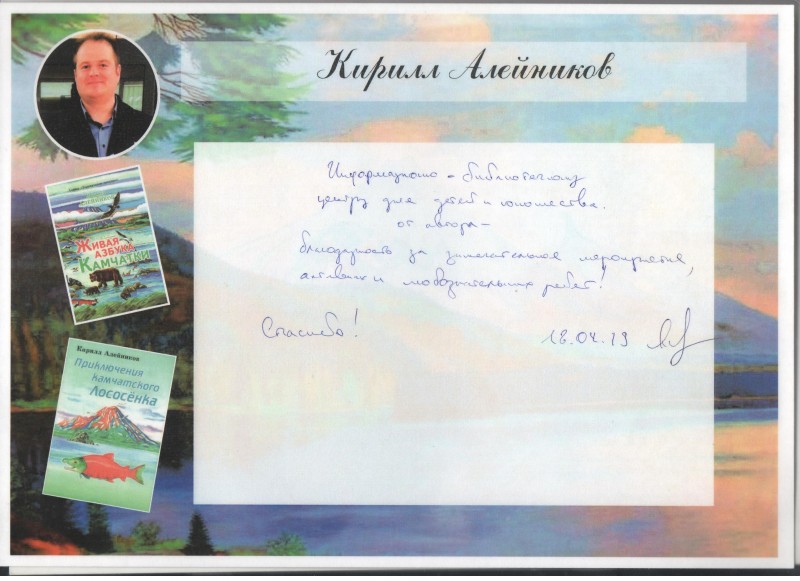 Кирилл Алейников
Информационно-библиотечному
центру для детей и юношества.
от автора -
благодарность за замечательное мероприятие,
активных и любознательных ребят!
Спасибо!
18.04.19
ЖИВАЯ
АЗБУКА
КАМЧАТКИ
Кирилл Алейников
Приключения
камчатского
Лососёнка